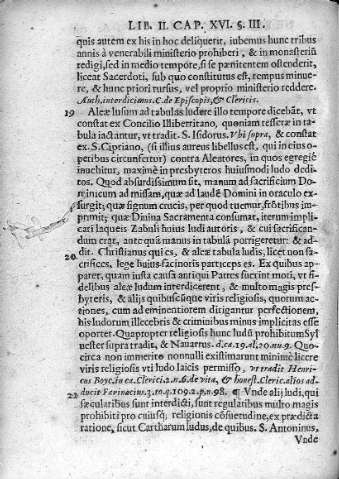 LIB. II. CAP. XVI. §. III.
quis autem ex his in hoc deliquerit, iubemus hunc tribus
annis à venerabili ministerio prohiberi, & in monasteriū
redigi, sed in medio tempore, si se pœnitentem ostenderit,
liceat Sacerdoti, sub quo constitutus est, tempus minue-
re, & hunc priori rursus, vel proprio ministerio reddere.
Auth. interdicimus. C. de Episcopis, & Clericis.
19 Aleæ lusum ad tabulas ludere illo tempore dicebāt, vt
constat ex Concilio Illiberritano, quoniam tesseræ in ta-
bula iactantur, vt tradit. S. Isidorus. Vbi supra, & constat
ex. S. Cipriano, (si illius aureus libellus est, qui in eius o-
peribus circunfertur) contra Aleatores, in quos egregiè
inuehitur, maximè in presbyteros huiusmodi ludo dedi-
tos. Quod absurdissimum sit, manum ad sacrificium Do-
minicum ad missam, quæ ad laudē Domini in oraculo ex-
surgit; quæ signum crucis, per quod tuemur, frōtibus im-
primit; quæ Diuina Sacramenta consumat, iterum impli-
cari laqueis Zabuli huius ludi autoris, & cui sacrifican-
dum erat, ante quā manus in tabulā porrigeretur: & ad-
dit. Christianus qui es, & aleæ tabula ludis, licet non sa-
20 crifices, lege huius facinoris particeps es. Ex quibus ap-
paret, quam iusta causa antiqui Patres fuerint moti, vt fi-
delibus aleæ ludum interdicerent, & multo magis pres-
byteris, & alijs quibuscūque viris religiosis, quorum ac-
tiones, cum ad eminentiorem dirigantur perfectionem,
his ludorum illecebris & criminibus minus implicitas esse
oportet. Quapropter religiosis hunc ludū prohibitum
uester supra tradit, & Nauarrus. Quo-
circa non immerito nonnulli existimarunt minimè licere
viris religiosis vti ludo laicis permisso, vt tradit Henri-
cus Boyc. in ca. Clerici. de vita, & honest. Cleric. alios ad-
22 ducit Farinacius. ¶ Vnde alij ludi, qui
sæcularibus sunt interdicti, sunt regularibus multo magis
prohibiti pro cuiusq; religionis cōsuetudine, ex prædicta
ratione, sicut Cartharum ludus, de quibus. S. Antoninus,
Vnde